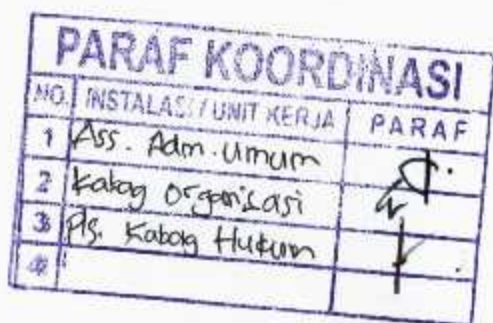 PARAF KOORDINASI
NO. INSTALASI / UNIT KERJA PARAF
1 Ass. Adm. Umum
2 Kabag Organisasi
3 Pls. Kabag Hukum
4